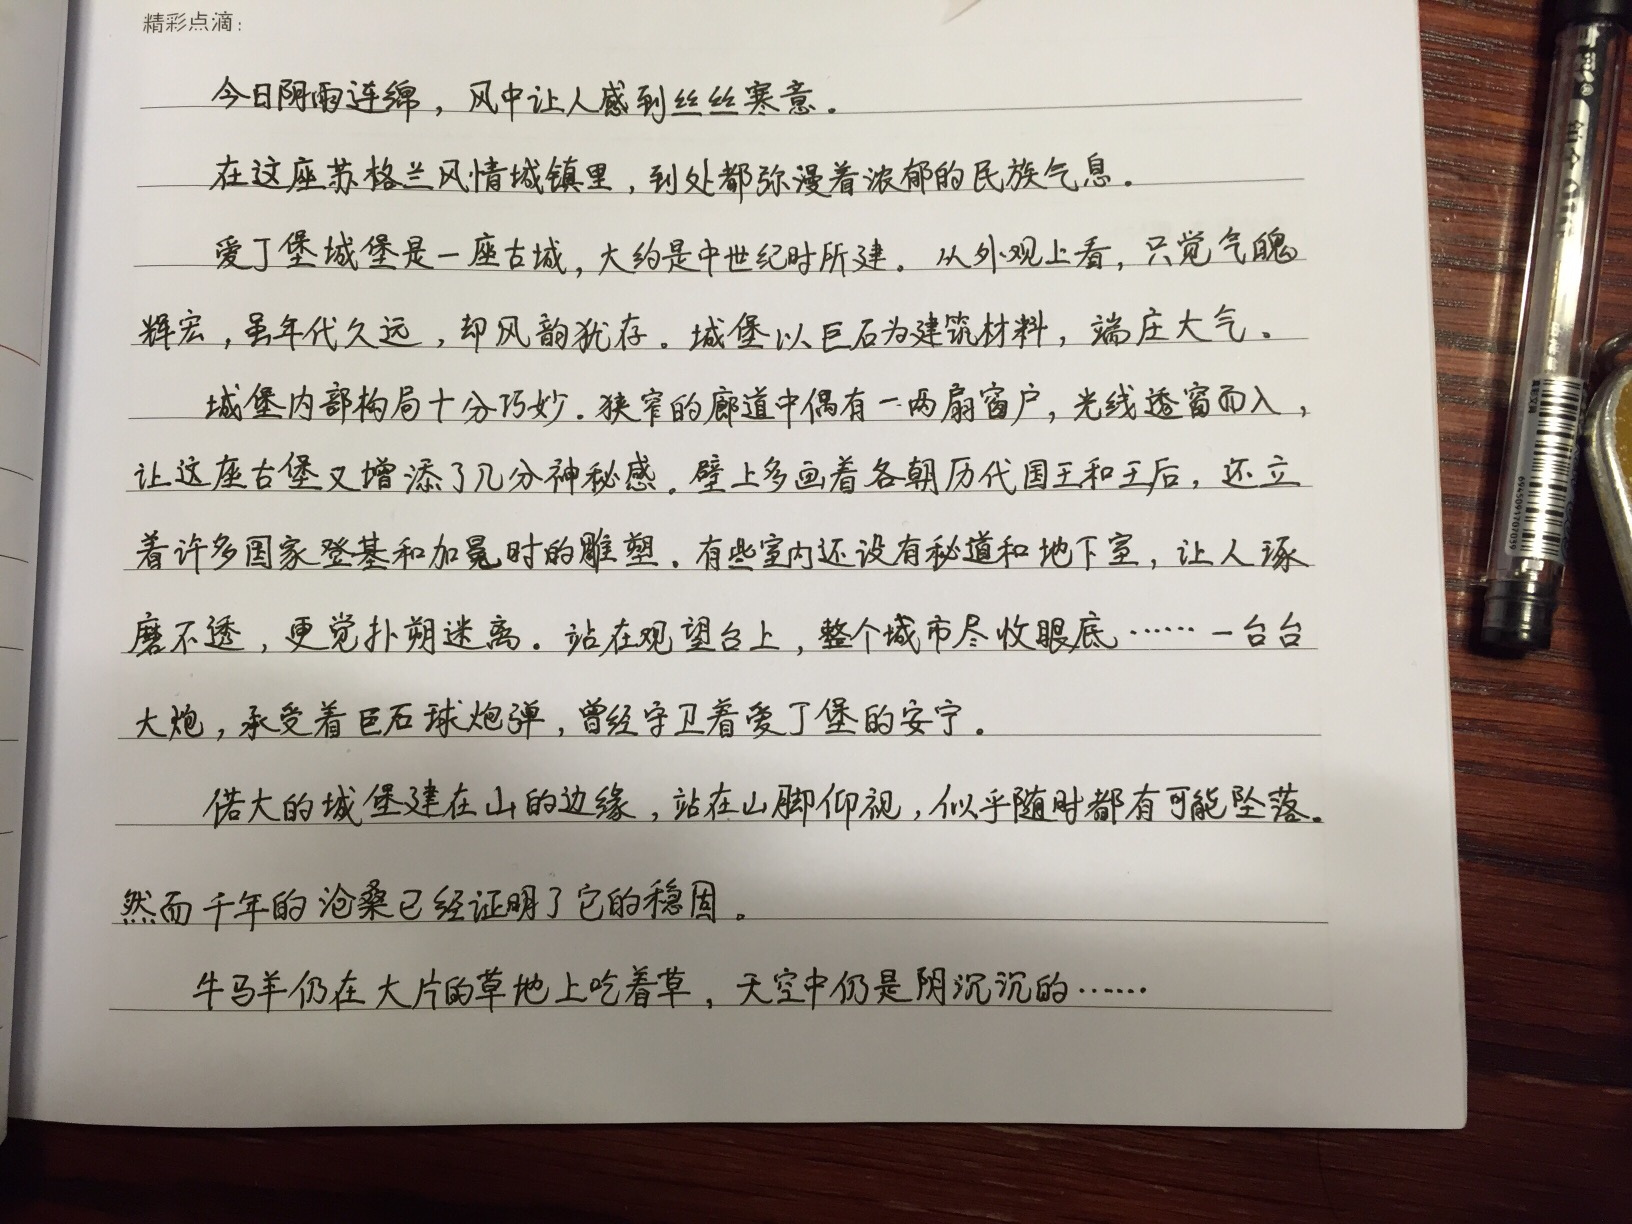 精彩点滴：
今日阴雨连绵，风中让人感到丝丝寒意。
在这座苏格兰风情城镇里，到处都弥漫着浓郁的民族气息。
爱丁堡城堡是一座古城，大约是中世纪时所建。从外观上看，只觉气魄
辉宏，虽年代久远，却风韵犹存。城堡以巨石为建筑材料，端庄大气。
城堡内部构局十分巧妙．狭窄的廊道中偶有一两扇窗户，光线透窗而入，
让这座古堡又增添了几分神秘感．壁上多画着各朝历代国王和王后，还立
着许多国家登基和加冕时的雕塑．有些室内还设有秘道和地下室，让人琢
磨不透，更觉扑朔迷离．站在观望台上，整个城市尽收眼底……一台台
大炮，承受着巨石球炮弹，曾经守卫着爱丁堡的安宁。
偌大的城堡建在山的边缘，站在山脚仰视，似乎随时都有可能坠落。
然而千年的沧桑已经证明了它的稳固。
牛马羊仍在大片的草地上吃着草，天空中仍是阴沉沉的……
6945091707039